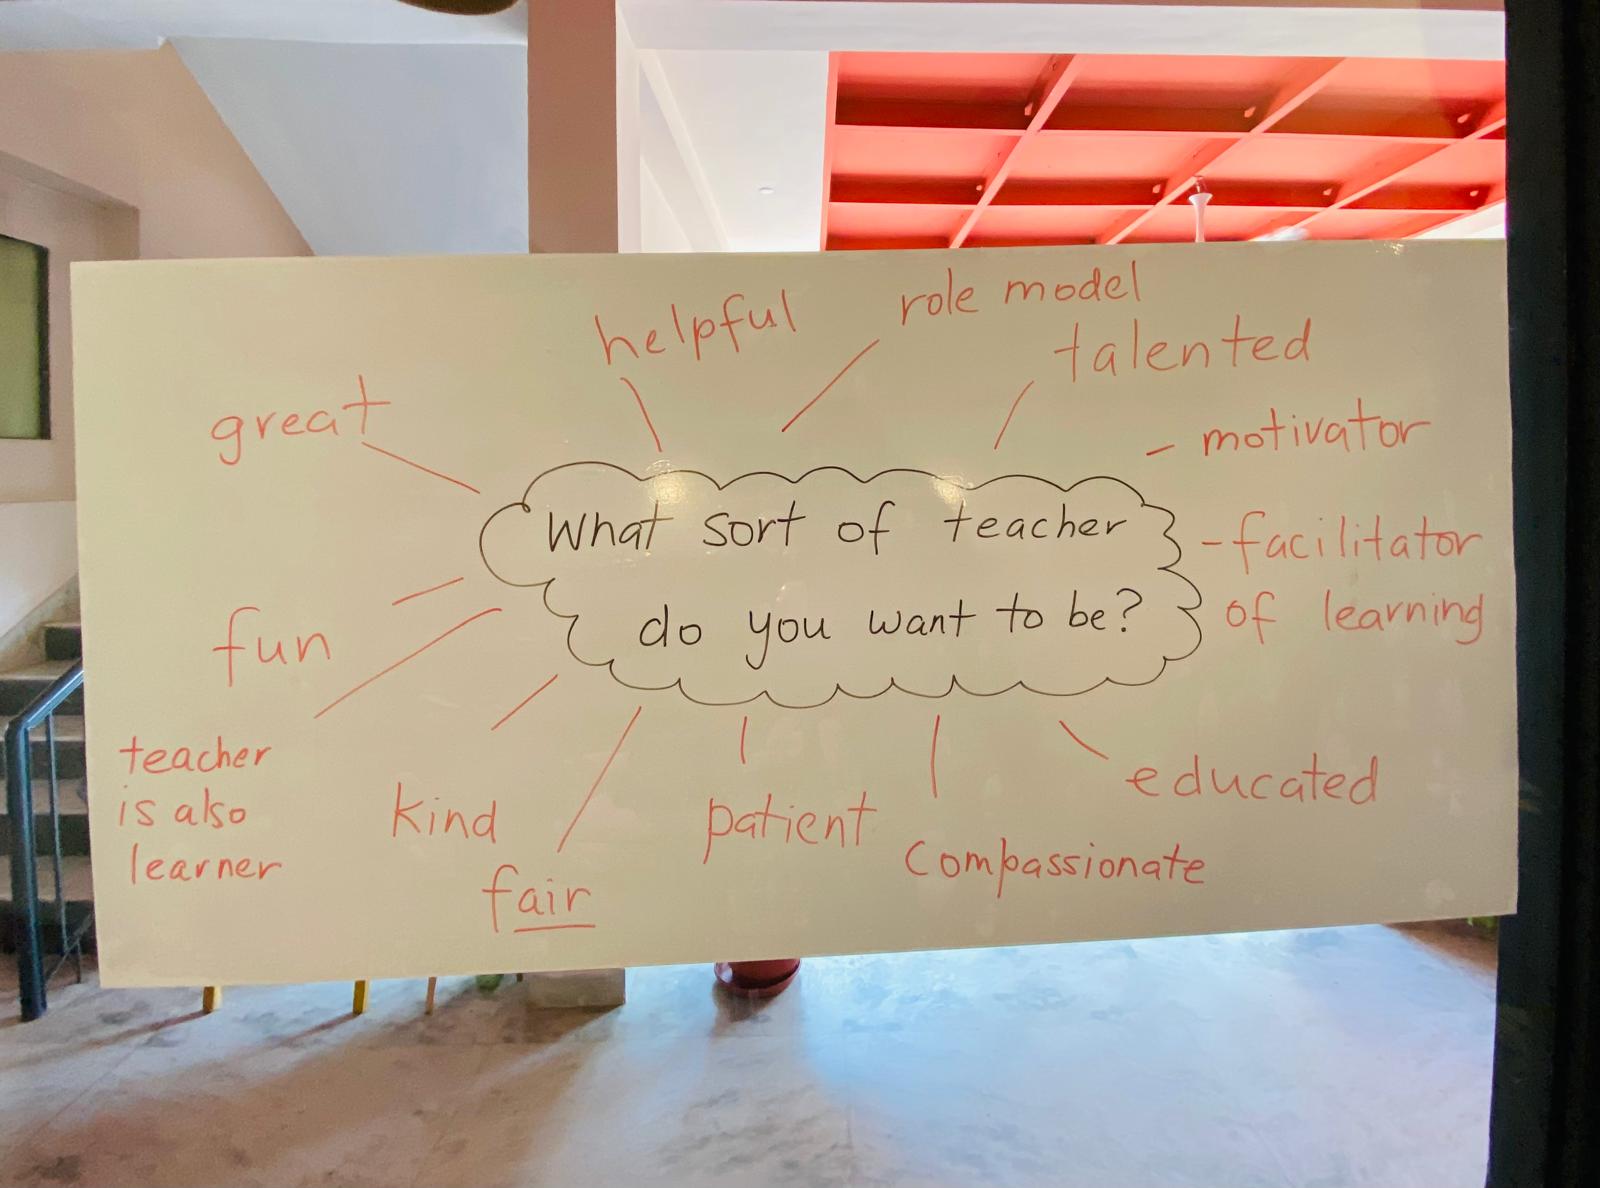 helpful
role model
talented
great
motivator
What sort of teacher
do you want to be?
-facilitator
of learning
fun
teacher
is also
learner
kind
fair
patient
compassionate
educated